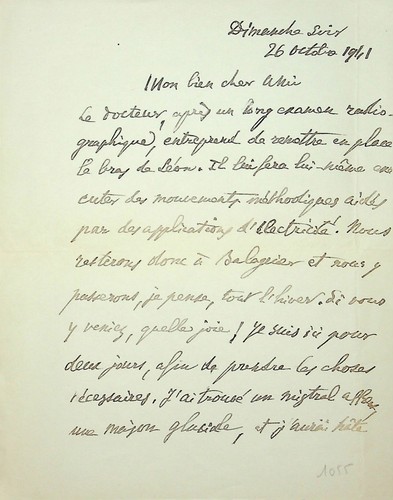 Dimanche soir
26 octobre 1941
Mon bien cher Ami
Le docteur, après un long examen radio-
graphique, entreprend de remettre en place
le bras de Léon. Il lui fera lui-même exé-
cuter des mouvements méthodiques aidés
par des applications d'électricité. Nous
resterons donc à Balaguier et nous y
passerons, je pense, tout l'hiver. Si vous
y veniez, quelle joie ! Je suis ici pour
deux jours, afin de prendre les choses
nécessaires. J'ai trouvé un mistral affreux,
une maison glaciale, et j'aurai hâte
1055